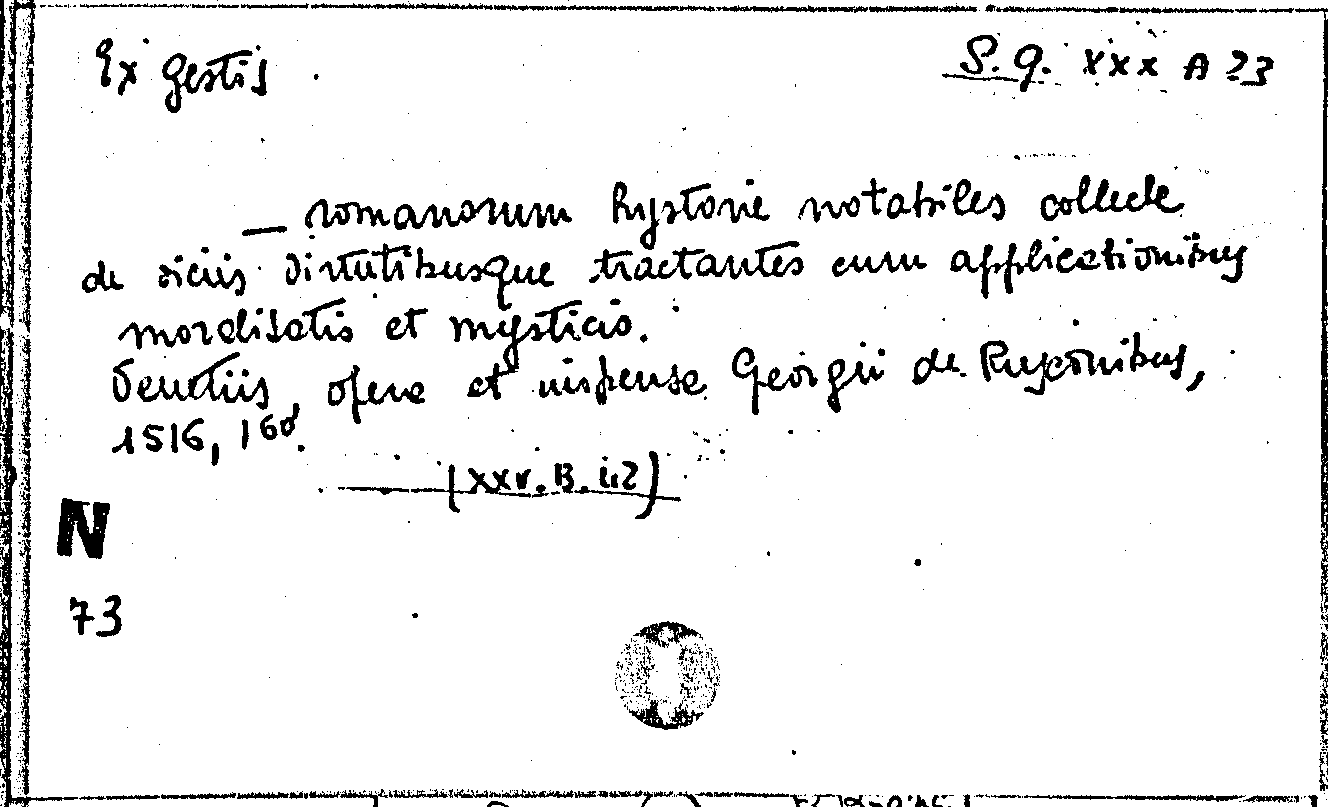 Ex gestis S.q. XXX A 23
— romanorum hystorie notabiles collecte
de viciis virtutibusque tractantes cum applicationibus
moralisatis et mysticis.
Venetiis, opera et inpensa Georgii de Rusconibus,
1516, 16º.
(XXV. B. 42)
N
73